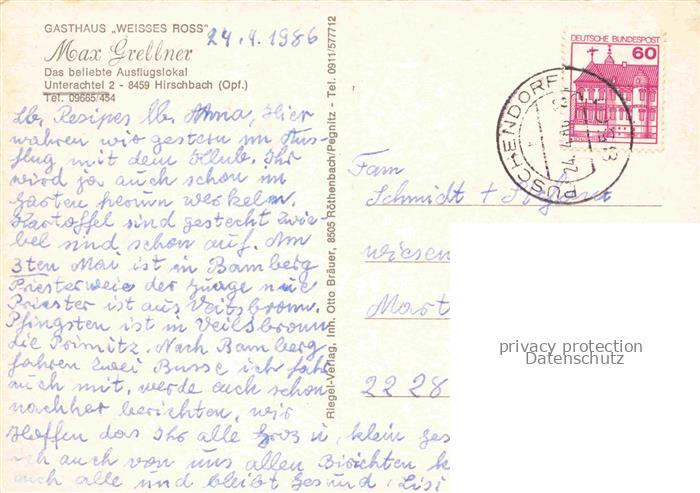 GASTHAUS „WEISSES ROSS"
24.4.1986
Max Grellner
Das beliebte Ausflugslokal
Unterachtel 2 - 8459 Hirschbach (Opf.)
Tel. 09665/454
lb. lb. Anna, Hier
wahren wir gestern im Aus-
flug mit dem Club. Ihr
wird ja auch schon im
Garten herum werkeln.
Kartoffel sind gesteckt Zwie-
bel sind schon auf. Am
3ten Mai ist in Bamberg
Priesterweie der junge neue
Priester ist aus Veitsbronn.
Pfingsten ist in Veitsbronn
die Primitz. Nach Bamberg
fahren zwei Busse ich fahr
auch mit, werde euch schon
nachher berichten, wir
Hoffen das Ihr alle Groß u, klein ges
ich auch von uns allen
auch alle und bleibt Gesund Lisi
Riegel-Verlag, Inh. Otto Bräuer, 8505 Röthenbach/Pegnitz - Tel. 0911/577712
DEUTSCHE BUNDESPOST
60
PUSCHENDORF
24.4.86
Fam
Schmidt +
wiesen
Mart
22 28
privacy protection
Datenschutz